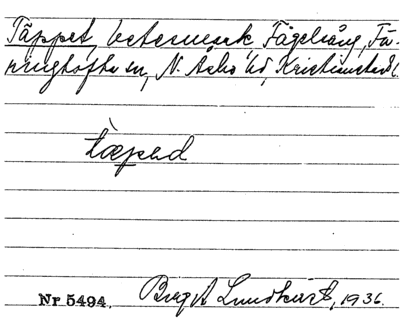 Täppet, betesmark, Fågelsång, Fä-
ringtofta sn, N. Åsbo hd, Kristianstads l.
tæpəd
Nr 5494. Birgit Lundkvist, 1936.